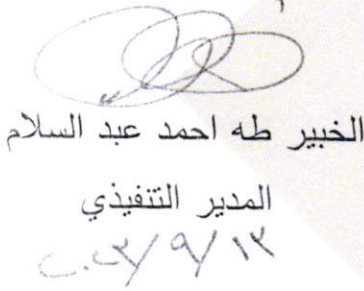 الخبير طه احمد عبد السلام
المدير التنفيذي
٢٠٢٣/٩/١٣